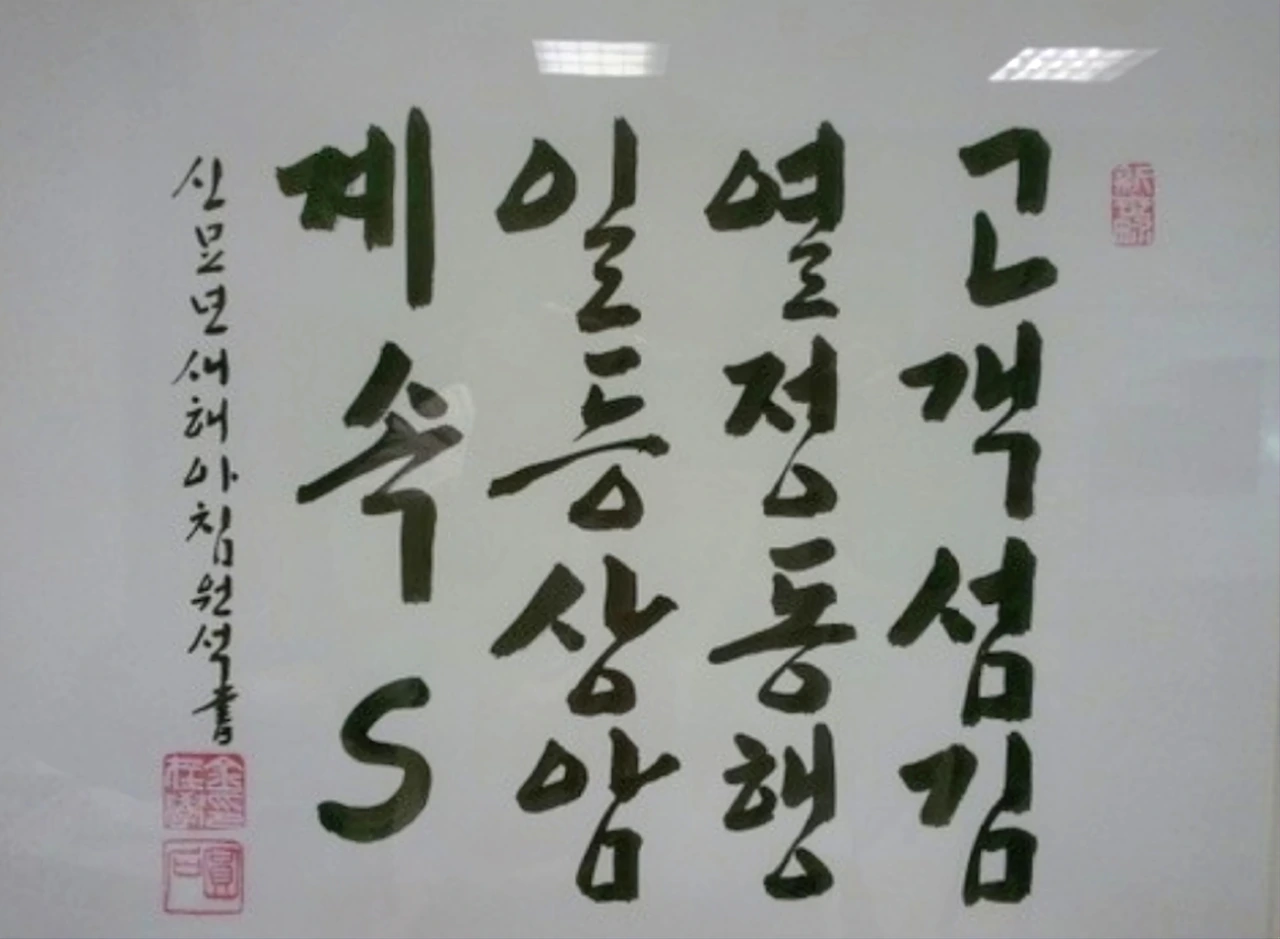 고객섬김
열정동행
일등상암
계속S
신묘년새해아침원석書